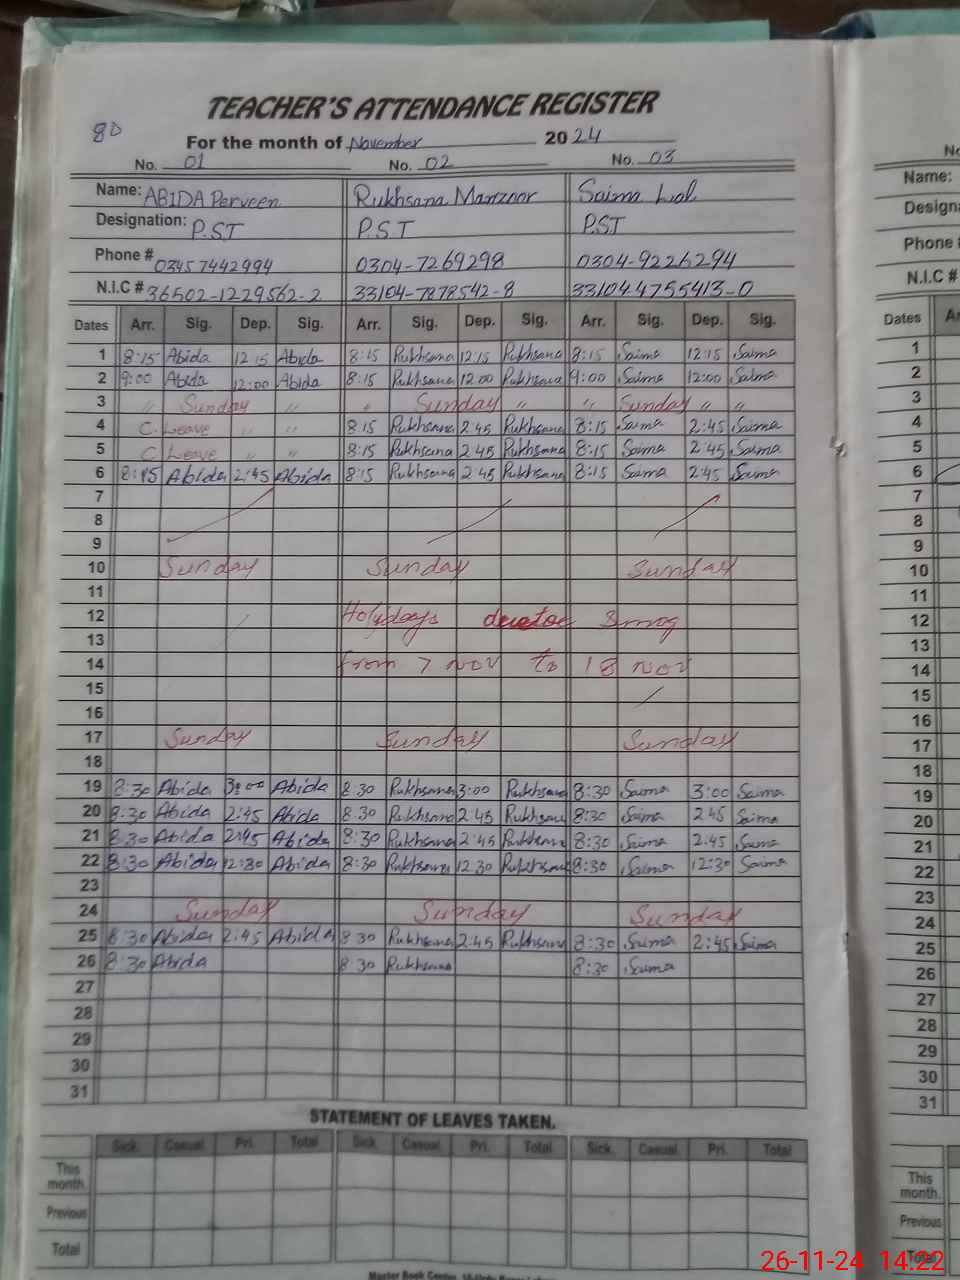 TEACHER'S ATTENDANCE REGISTER
80
For the month of November 2024
No. 01 No. 02 No. 03
Name: ABIDA Perveen Rukhsana Manzoor Saima
Designation: P.S.T P.S.T P.S.T
Phone # 03457442994 0304-7269298 0304-9226294
N.I.C # 36502-1229562-2 33104-7878542-8 33104-4755413-0
Dates Arr. Sig. Dep. Sig. Arr. Sig. Dep. Sig. Arr. Sig. Dep. Sig.
1 8:15 Abida 12 15 Abida 8:15 Rukhsana 12:15 Rukhsana 8:15 Saima 12:15 Saima
2 9:00 Abida 12:00 Abida 8:15 Rukhsana 12:00 Rukhsana 9:00 Saima 12:00 Saima
3 " Sunday " " Sunday " " Sunday " "
4 C. Leave " " 8:15 Rukhsana 2:45 Rukhsana 8:15 Saima 2:45 Saima
5 C Leave " " 8:15 Rukhsana 2:45 Rukhsana 8:15 Saima 2:45 Saima
6 8:15 Abida 2:45 Abida 8:15 Rukhsana 2:45 Rukhsana 8:15 Saima 2:45 Saima
7
8
9
10 Sunday Sunday Sunday
11
12 Holydays due to Smog
13
14 from 7 nov to 18 nov
15
16
17 Sunday Sunday Sunday
18
19 8:30 Abida 3:00 Abida 8:30 Rukhsana 3:00 Rukhsana 8:30 Saima 3:00 Saima
20 8:30 Abida 2:45 Abida 8:30 Rukhsana 2:45 Rukhsana 8:30 Saima 2:45 Saima
21 8:30 Abida 2:45 Abida 8:30 Rukhsana 2:45 Rukhsana 8:30 Saima 2:45 Saima
22 8:30 Abida 12:30 Abida 8:30 Rukhsana 12:30 Rukhsana 8:30 Saima 12:30 Saima
23
24 Sunday Sunday Sunday
25 8:30 Abida 2:45 Abida 8:30 Rukhsana 2:45 Rukhsana 8:30 Saima 2:45 Saima
26 8:30 Abida 8:30 Rukhsana 8:30 Saima
27
28
29
30
31
STATEMENT OF LEAVES TAKEN.
Sick. Casual. Pri. Total Sick. Casual. Pri. Total Sick. Casual. Pri. Total
This month.
Previous
Total
Master Book
Name:
Phone
N.I.C #
Dates
1
2
3
4
5
6
7
8
9
10
11
12
13
14
15
16
17
18
19
20
21
22
23
24
25
26
27
28
29
30
31
This month.
Previous
Total
26-11-24 14:22